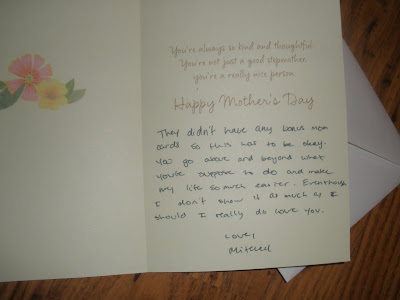 You're always so kind and thoughtful.
You're not just a good stepmother,
you're a really nice person.
Happy Mother's Day
They didn't have any bonus mom
cards so this has to be okay.
You go above and beyond what
you're suppose to do and make
my life so much easier. Eventhough
I don't show it as much as I
should I really do love you.
Love,
Mitchell